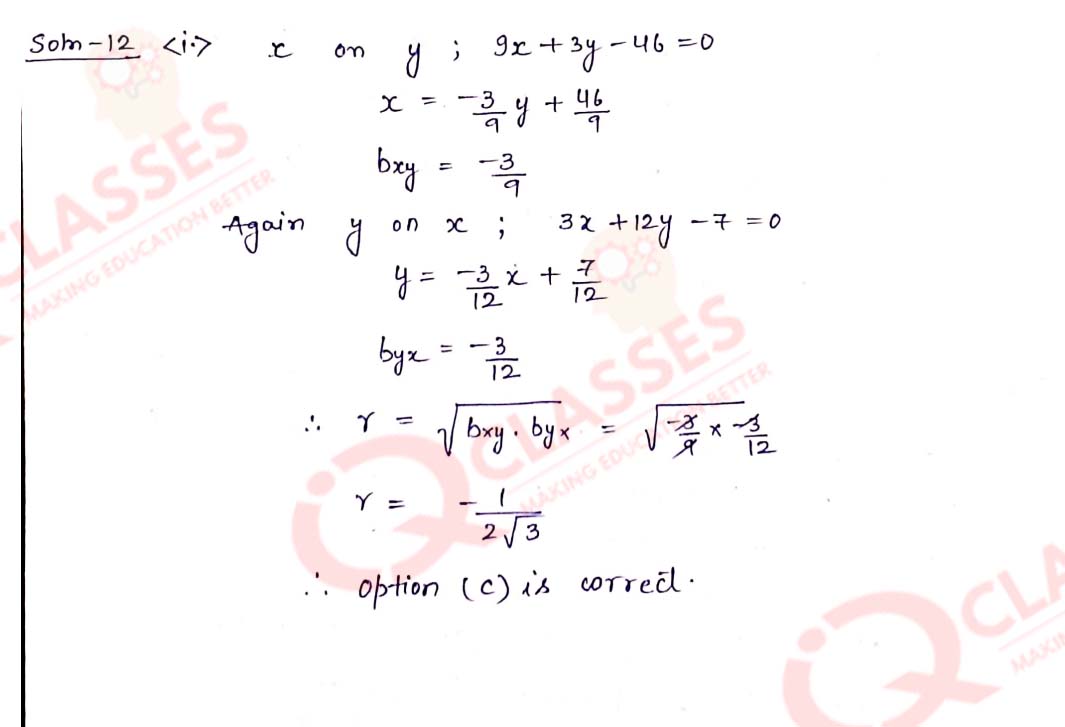 Soln-12 <i.> x on y ; 9x + 3y - 46 = 0
x = -3/9 y + 46/9
bxy = -3/9
Again y on x ; 3x + 12y - 7 = 0
y = -3/12 x + 7/12
byx = -3/12
∴ r = √(bxy · byx) = √(-3/9 × -3/12)
r = -1/(2√3)
∴ option (C) is correct.
CLASSES
MAKING EDUCATION BETTER
iQ CLASSES
MAKING EDUCATION BETTER
iQ CLA
MAKIN